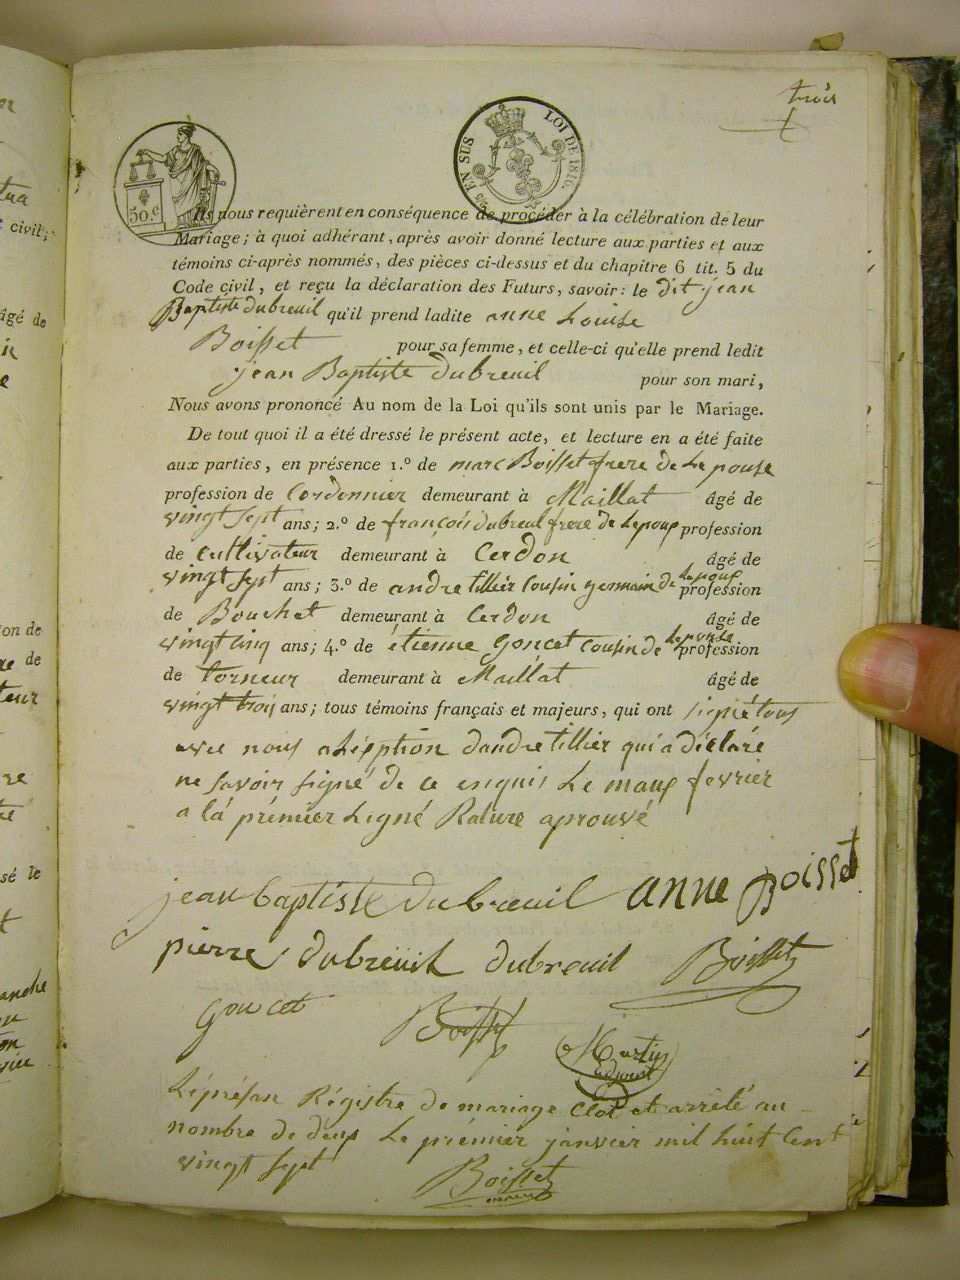 trois
50.c
25 EN SUS
LOI DE 1816.
Ils nous requièrent en conséquence de procéder à la célébration de leur
Mariage; à quoi adhérant, après avoir donné lecture aux parties et aux
témoins ci-après nommés, des pièces ci-dessus et du chapitre 6 tit. 5 du
Code civil, et reçu la déclaration des Futurs, savoir: le dit jean
Baptiste dubreuil qu'il prend ladite anne Louise
Boisset pour sa femme, et celle-ci qu'elle prend ledit
jean Baptiste dubreuil pour son mari,
Nous avons prononcé Au nom de la Loi qu'ils sont unis par le Mariage.
De tout quoi il a été dressé le présent acte, et lecture en a été faite
aux parties, en présence 1.º de marc Boisset frere de Lepouse
profession de Cordonnier demeurant à Maillat âgé de
vingt sept ans; 2.º de françois dubreul frere de Lepoux profession
de Cultivateur demeurant à Cerdon âgé de
vingt sept ans; 3.º de andre tillier Cousin germain de Lepoux profession
de Bouchet demeurant à Cerdon âgé de
vingt cinq ans; 4.º de étienne goncet Cousin de Lepouse profession
de torneur demeurant à Maillat âgé de
vingt trois ans; tous témoins français et majeurs, qui ont signé tous
avec nous a Léxption dandre tillier qui a déclaré
ne savoir signé de ce enquis Le maux fevrier
a là prémier Ligné Rature aprouvé
jean baptiste dubreuil anne Boisset
pierre dubreuil dubreuil Boisset
goncet Boisset
Martin
adjoint
Léprésan Régistre de mariage Clos et arrêté au
nombre de deux Le prémier janvier mil huit Cent
vingt sept
Boisset
maire